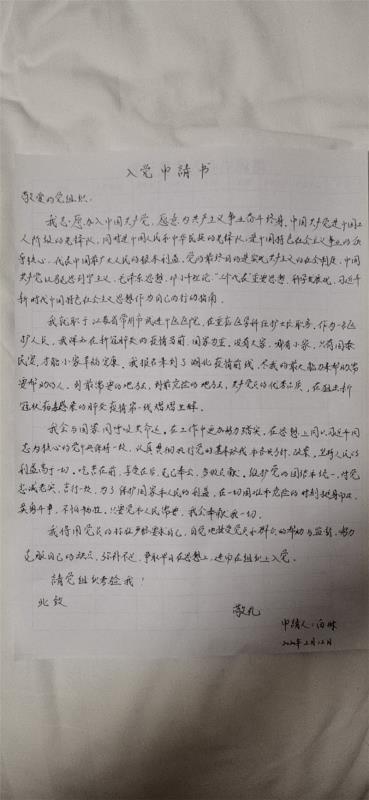 入党申請书
敬爱的党组织:
我志愿加入中国共产党,愿意为共产主义事业奋斗终身。中国共产党是中国工
人阶级的先锋队,同时是中国人民和中华民族的先锋队,是中国特色社会主义事业的领
导核心,代表中国最广大人民的根本利益。党的最终目的是实现共产主义的社会制度,中国
共产党以马克思列宁主义,毛泽东思想,邓小平理论,“三个代表”重要思想,科学发展观,习近平
新时代中国特色社会主义思想作为自己的行动指南。
我就职于江苏省常州市武进中医医院,在重症医学科任护士长职务,作为一名医
护人员,我深知在新冠肺炎的疫情前,国家为重,没有大家,哪有小家,只有国泰
民安,才能小家幸福安康。我报名来到了湖北疫情前线,尽我的最大能力来帮助需
要帮助的人,到最需要的地方去,到最危险的地方去,
冠状病毒感染的肺炎疫情第一线
我会与国家同呼吸共命运,在工作中更加努力踏实,在思想上同以习近平同
志为核心的党中央保持一致,认真贯彻执行党的基本路线和各项方针、政策,坚持人民的
利益高于一切,吃苦在前,享受在后,克己奉公,多做贡献。维护党的团结和统一,对党
忠诚老实,言行一致,为了保护国家和人民的利益,在一切困难和危险的时刻挺身而出,
英勇斗争,不怕牺牲。只要党和人民需要,我会奉献我一切。
我将用党员的标准严格要求自己,自觉地接受党员和群众的帮助与监督,努力
克服自己的缺点,弥补不足,争取早日在思想上,进而在组织上入党。
請党组织考验我!
此致
敬礼
申請人:
2020年2月12日